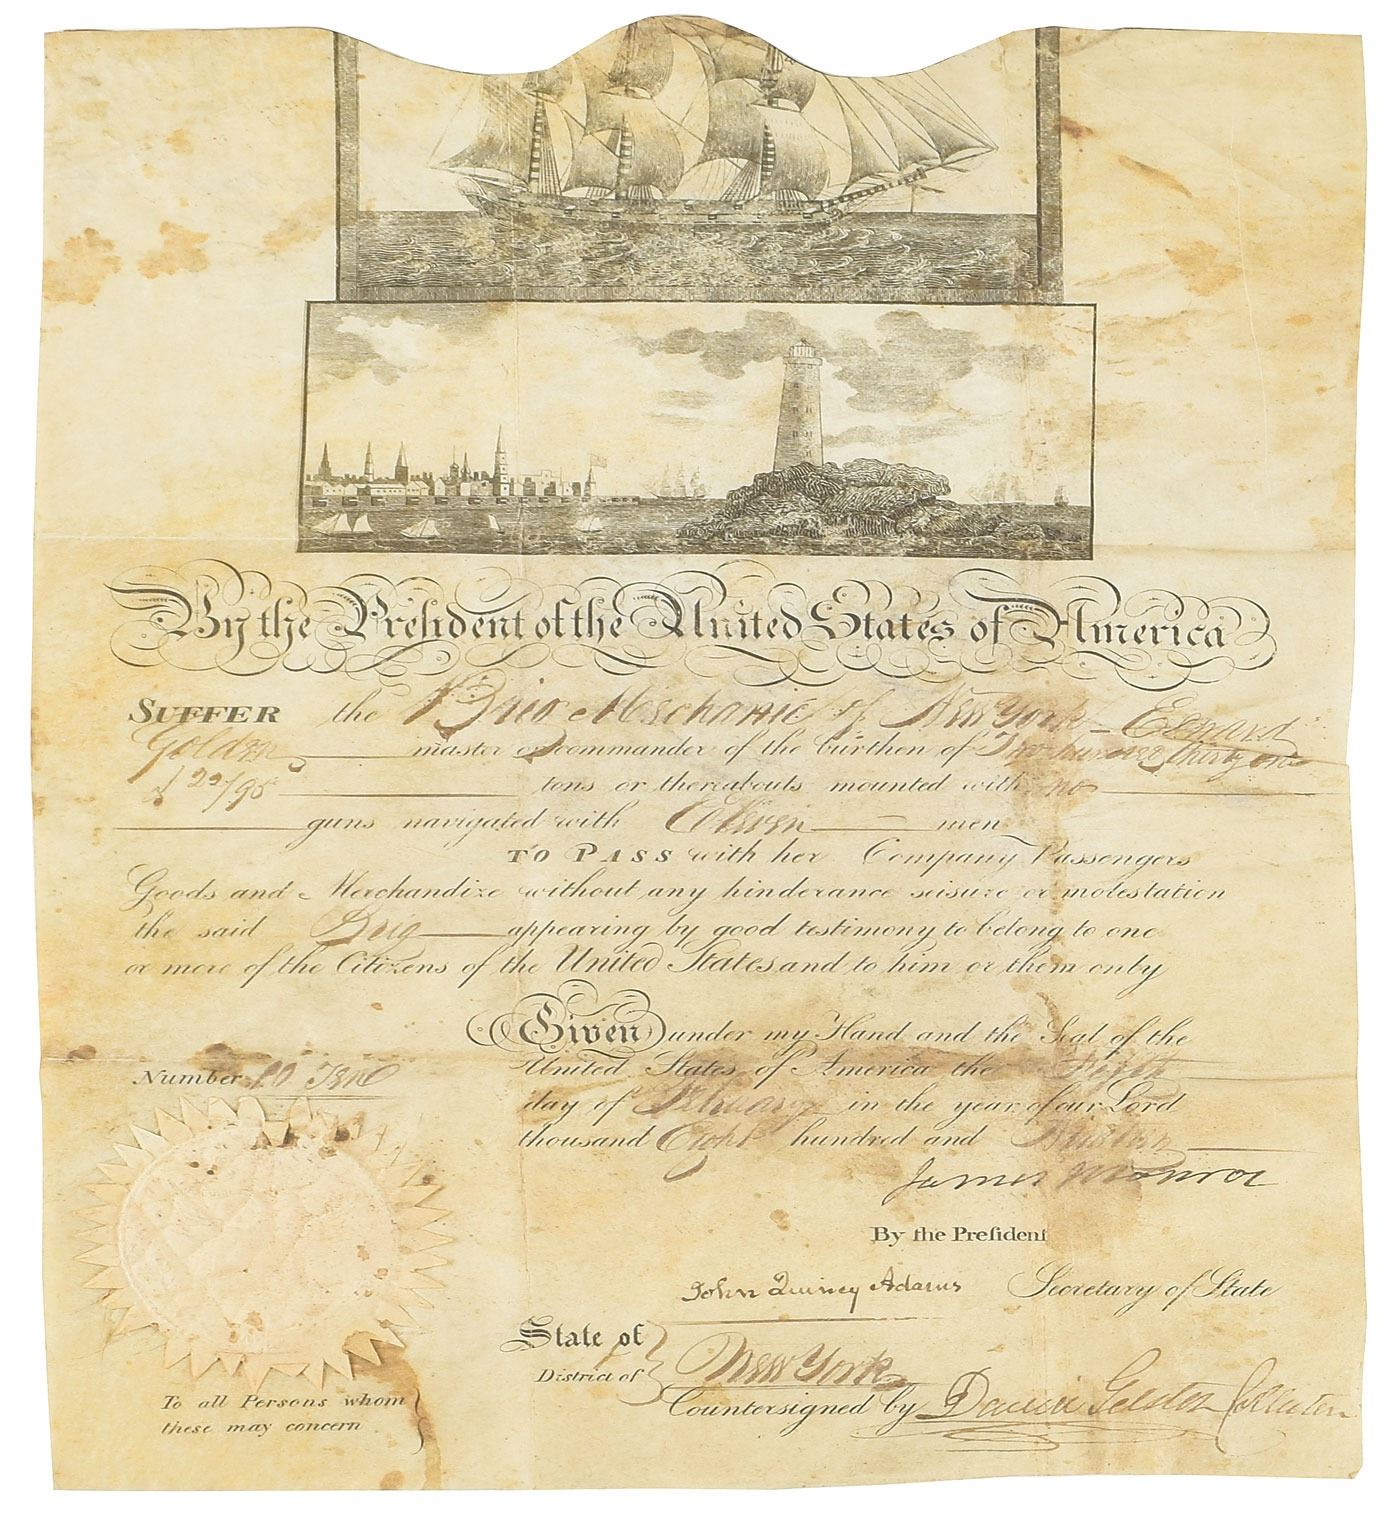 By the President of the United States of America
SUFFER the Brig Mechanic of New York Edward
Golden master or commander of the burthen of Two hundred thirty one
& 22/95 tons or thereabouts mounted with no
guns navigated with Eleven men
TO PASS with her Company Passengers
Goods and Merchandize without any hinderance seisure or molestation
the said Brig appearing by good testimony to belong to one
or more of the Citizens of the United States and to him or them only
Given under my Hand and the Seal of the
United States of America the
day of February in the year of our Lord
thousand Eight hundred and Nineteen
Number 10 Ten
James Monroe
By the President
John Quincy Adams Secretary of State
State of
District of } New York
Countersigned by David Gelston Collector
To all Persons whom
these may concern }